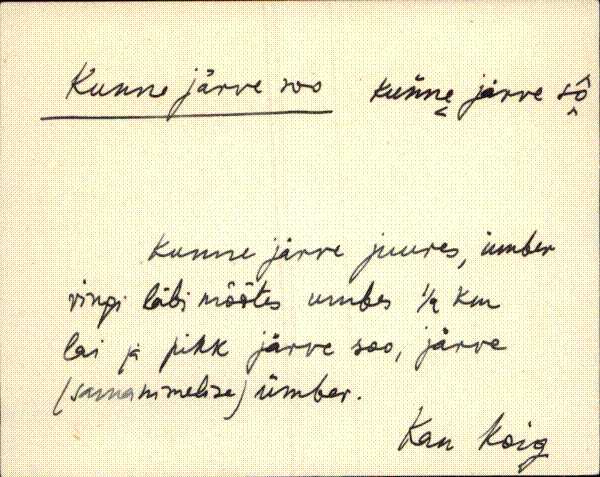 Kunne järve soo kün̄ne järve sô
Kunne järve juures, ümber
ringi läbi mõõtes umbes ½ km
lai ja pikk järve soo, järve
(samanimelise) ümber.
Kan Koig